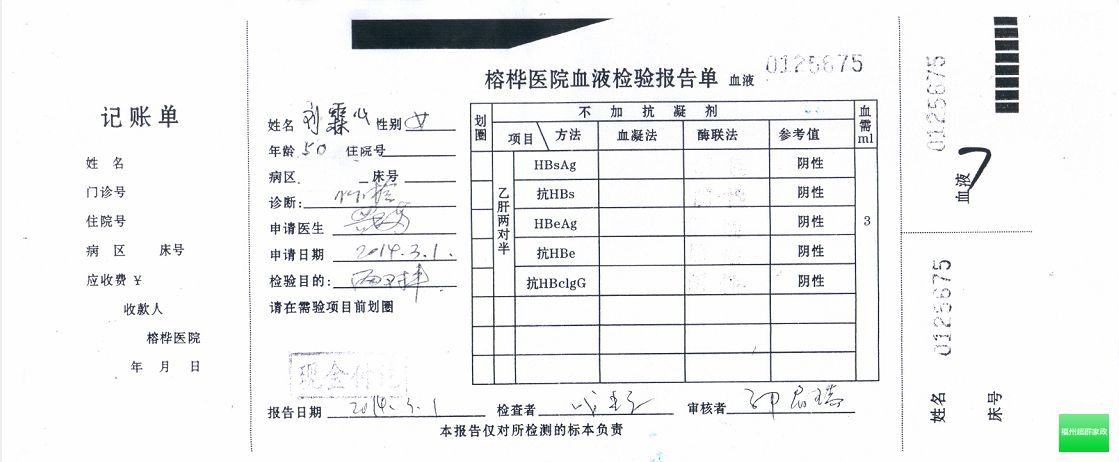 记账单
姓 名
门诊号
住院号
病 区 床号
应收费 ¥
收款人
榕桦医院
年 月 日
榕桦医院血液检验报告单 血液
0125675
姓名 刘霖心 性别 女
年龄 50 住院号
病区 床号
诊断:
申请医生
申请日期 2014.3.1.
检验目的: 两对半
请在需验项目前划圈
划圈 不加抗凝剂 血需ml
项目 方法 血凝法 酶联法 参考值
乙肝两对半
HBsAg 阴性
抗HBs 阴性
HBeAg 阴性
抗HBe 阴性
抗HBcIgG 阴性
3
现金付讫
报告日期 2014.3.1 检查者 审核者
本报告仅对所检测的标本负责
0125675
血液
0125675
姓名
床号
福州超群家政